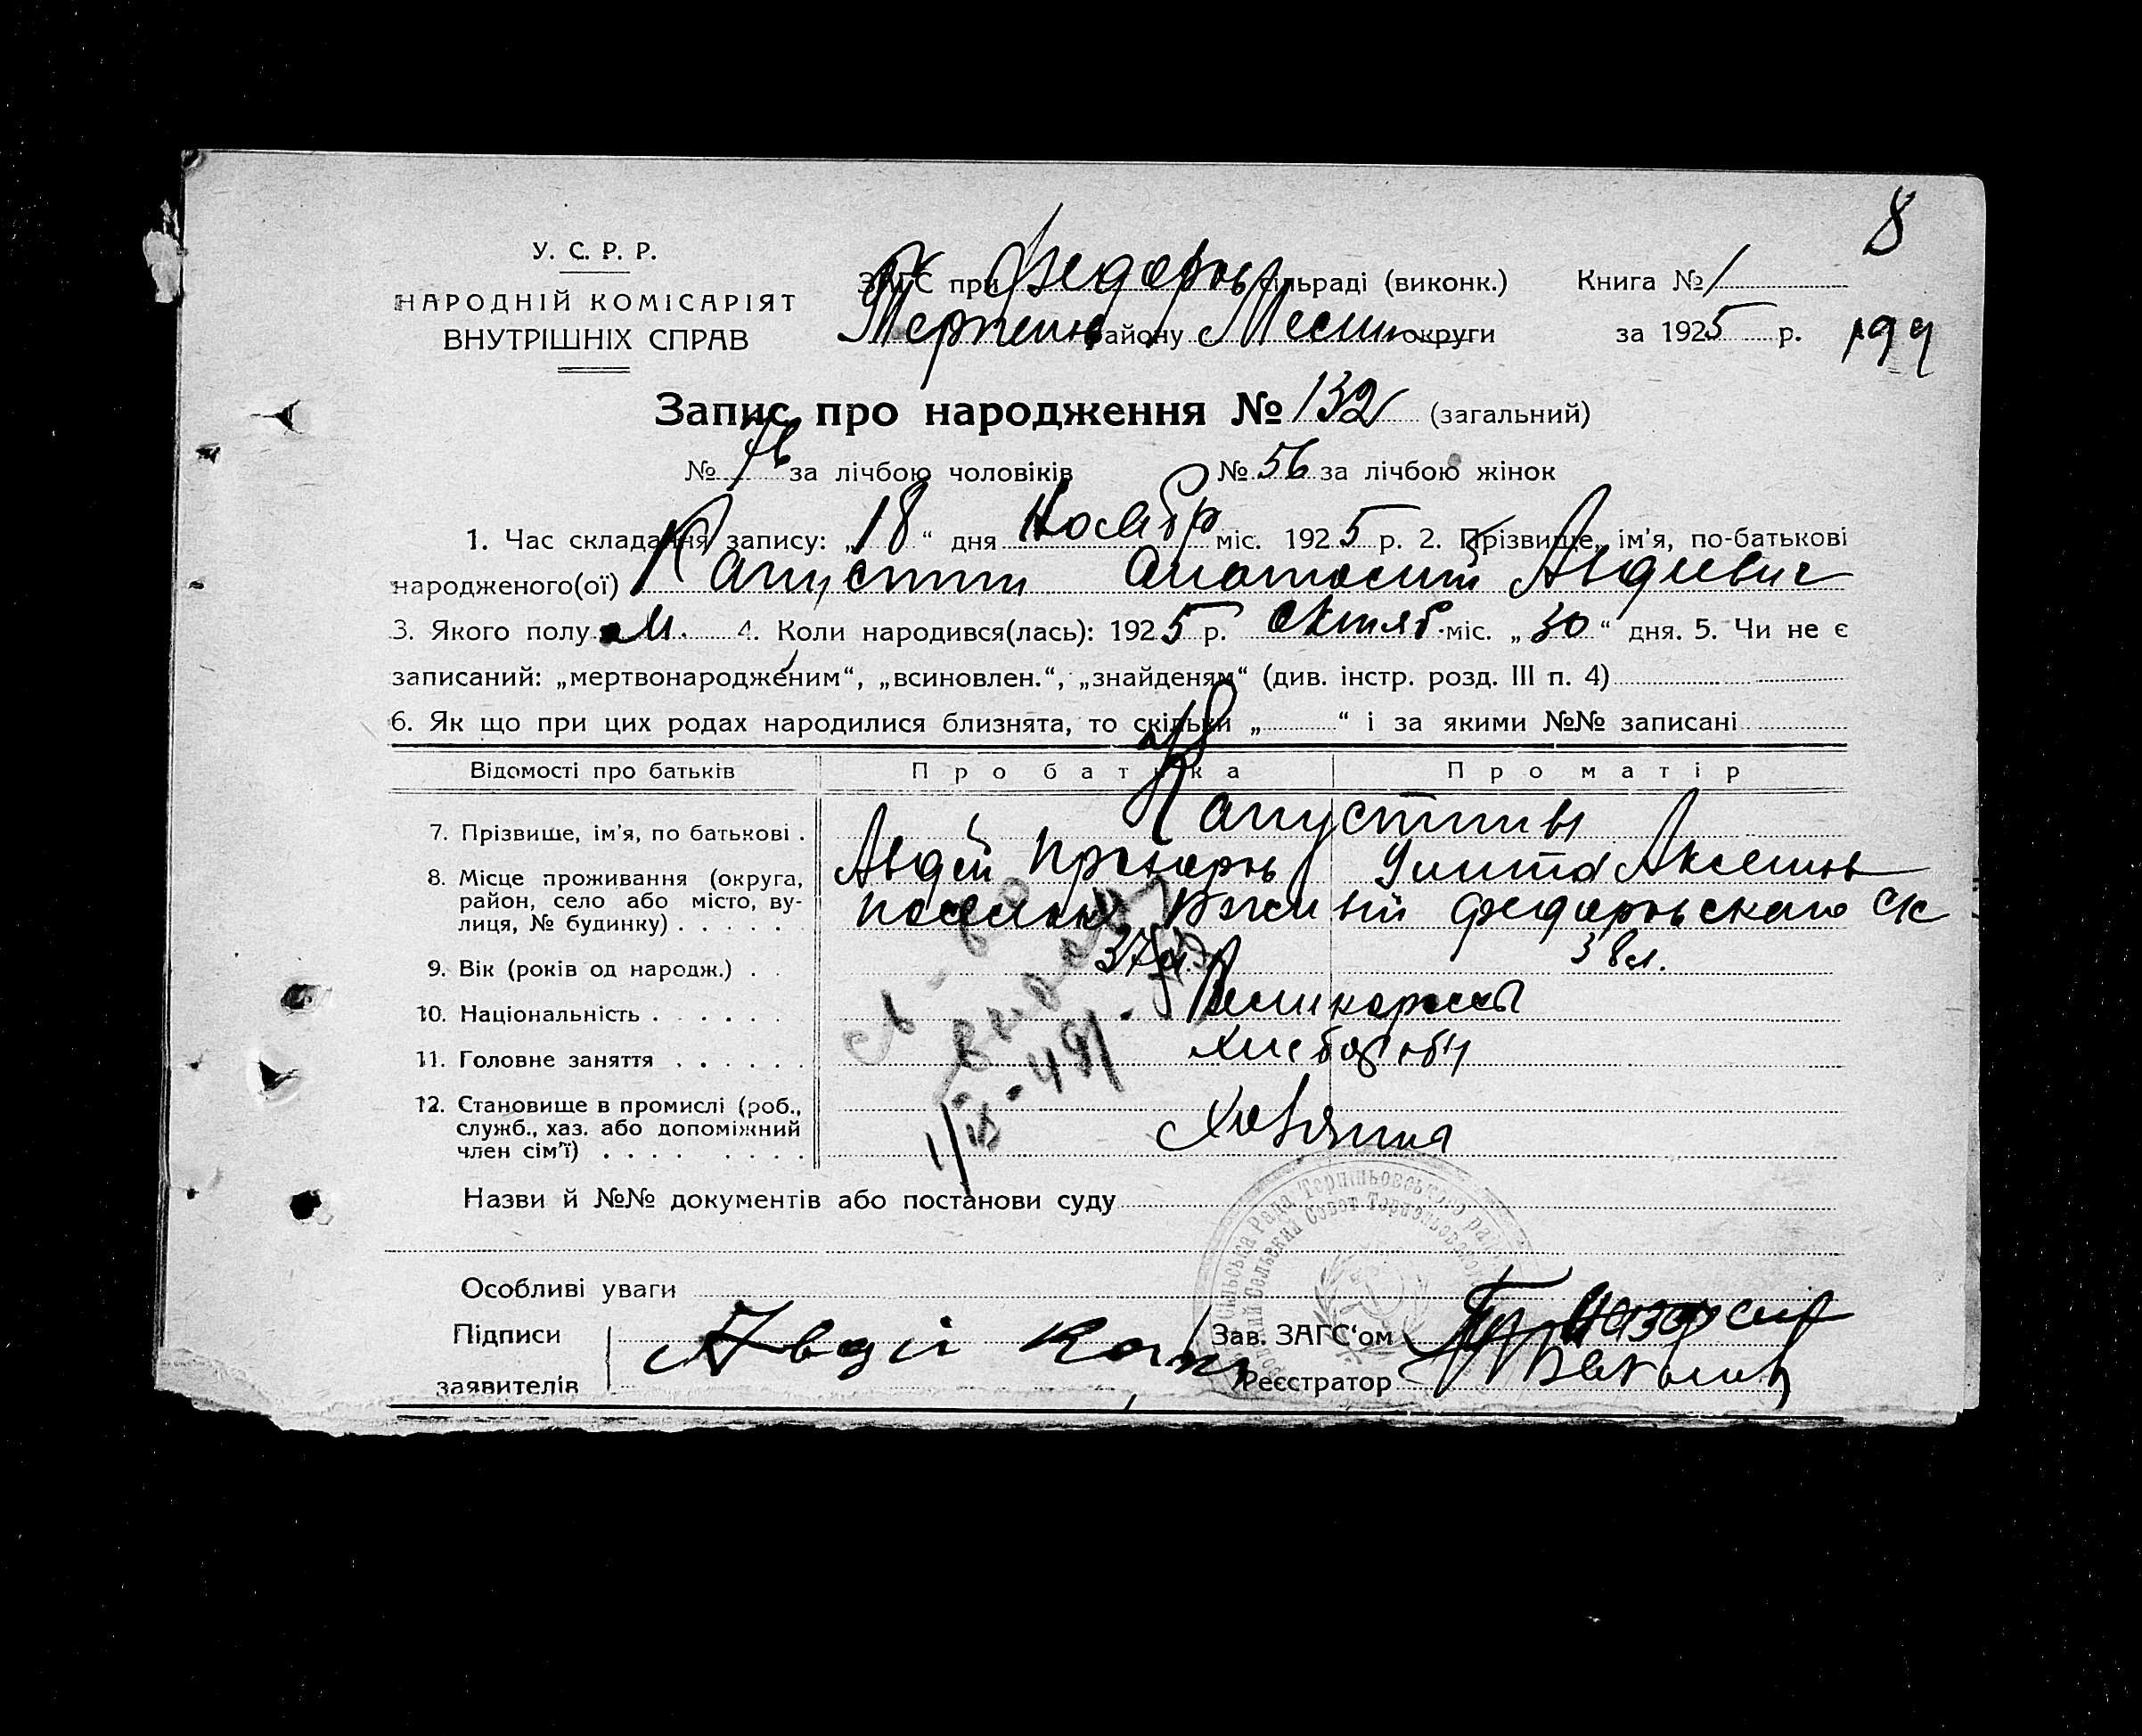 8
У. С. Р. Р.
НАРОДНІЙ КОМІСАРІЯТ
ВНУТРІШНІХ СПРАВ
ЗАГС при Федоров сільраді (виконк.) Книга № 1
Терпении району Мелит округи за 1925 р. 199
Запис про народження № 132 (загальний)
№ 76 за лічбою чоловіків № 56 за лічбою жінок
1. Час складання запису: „18“ дня Ноябр міс. 1925 р. 2. Прізвище, ім'я, по-батькові
народженого(ої) Капустин Анатолий Авдиевич
3. Якого полу м. 4. Коли народився(лась): 1925 р. Октяб. міс. „30“ дня. 5. Чи не є
записаний: „мертвонародженим“, „всиновлен.“, „знайденям“ (див. інстр. розд. III п. 4)
6. Як що при цих родах народилися близнята, то скільки „ “ і за якими №№ записані
Відомості про батьків Про батька Про матір
7. Прізвише, ім'я, по батькові . Капустины
Авдей Прохоров Улита Аксенов
8. Місце проживання (округа, район, село або місто, вулиця, № будинку) . . . . . поселок Федоровского с/с
9. Вік (років од народж.) . . 37 л. 38 л.
10. Національність . . . . . . Великороссы
11. Головне заняття . . . . . . Хлебороб
12. Становище в промислі (роб., служб., хаз. або допоміжний член сім'ї) . . . . . . . . Хозяина
св-во
1/IX-49
Назви й №№ документів або постанови суду
Особливі уваги
Підписи Авдій Кап Зав. ЗАГС‘ом
заявителів Реєстратор